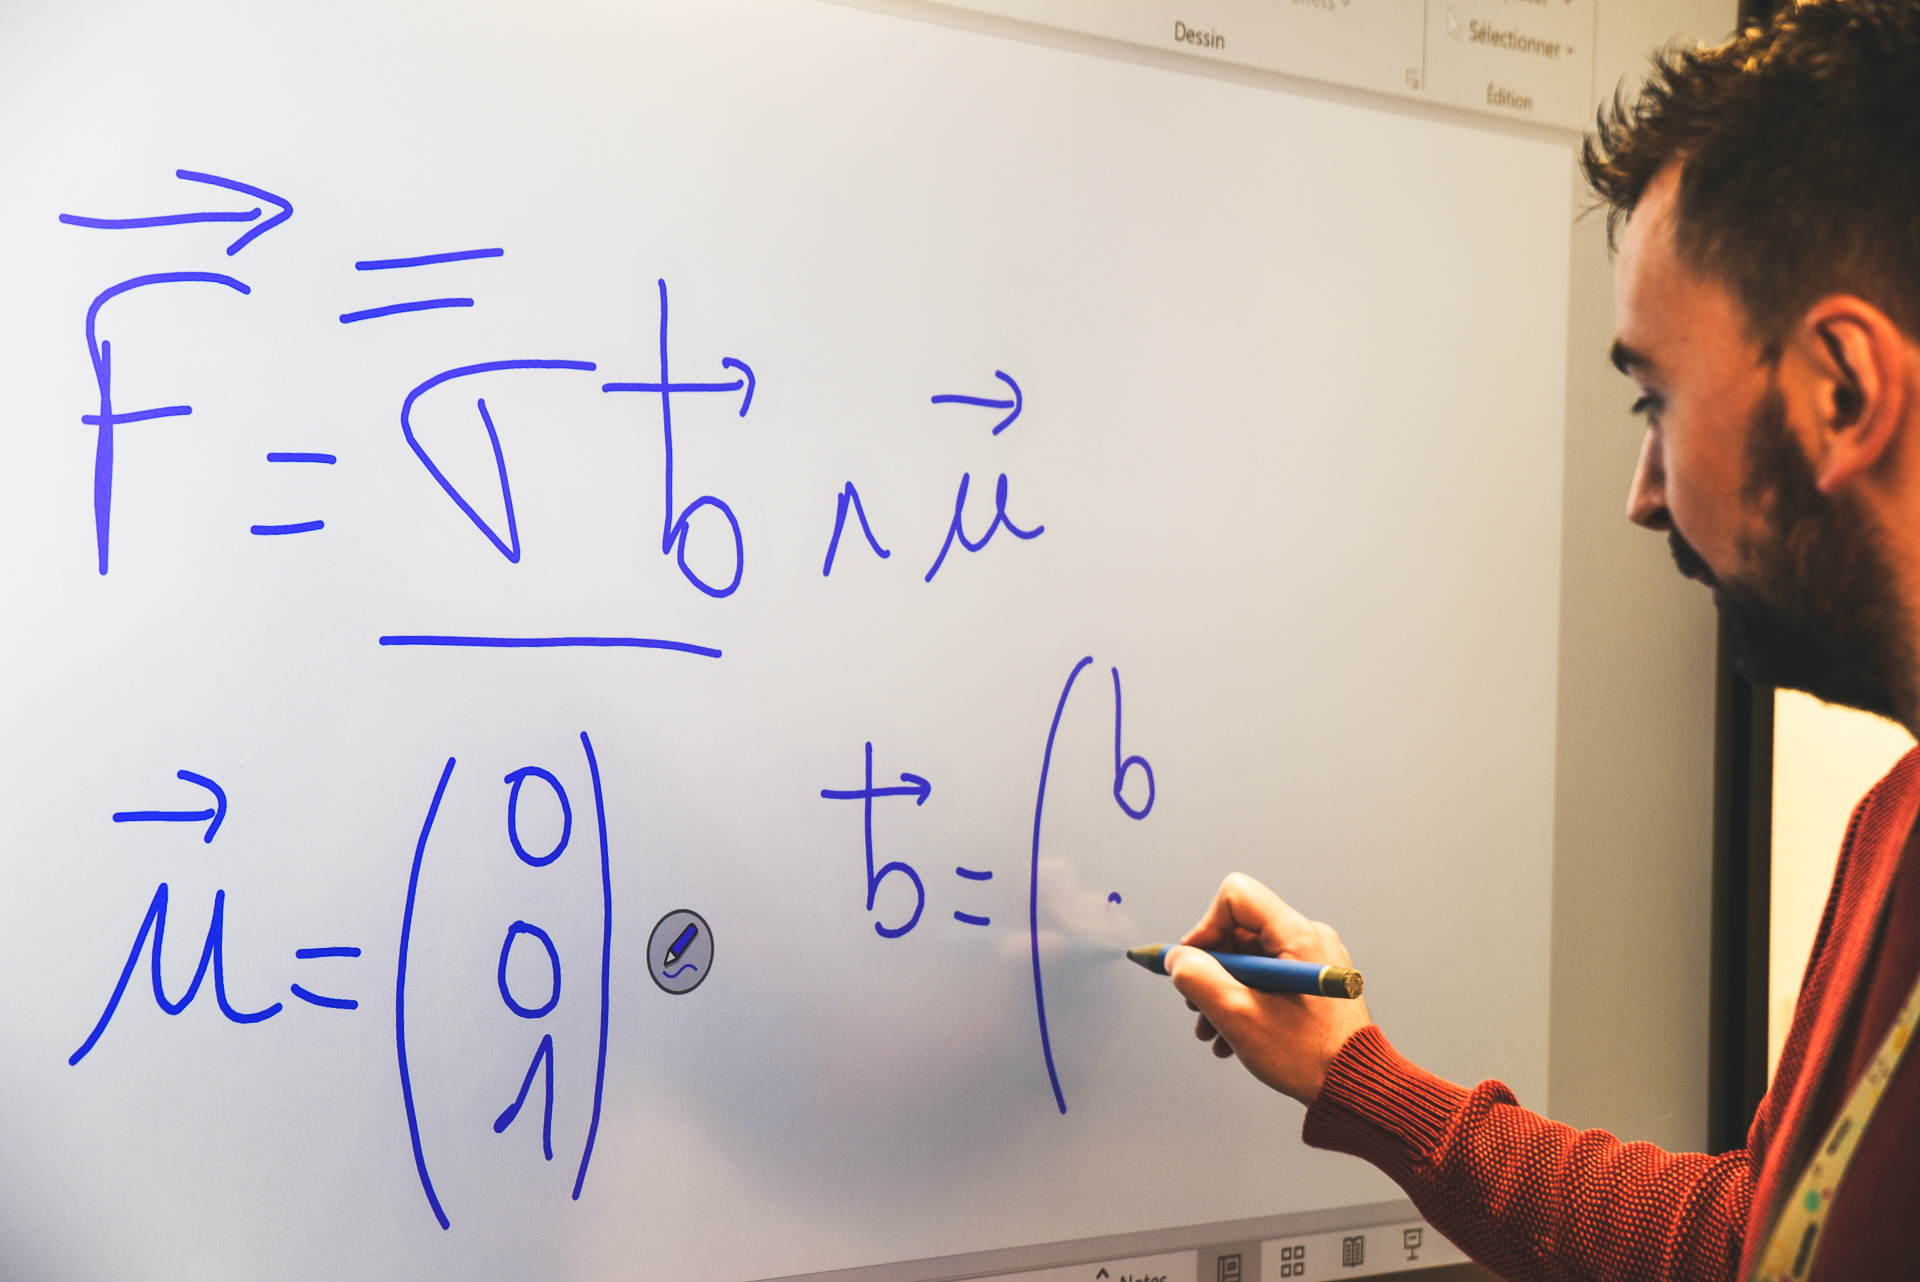 Dessin
Sélectionner
Édition
F⃗ =
= σ b⃗ ∧ μ⃗
μ⃗ = (0
0
1)
b⃗ = (b
Notes